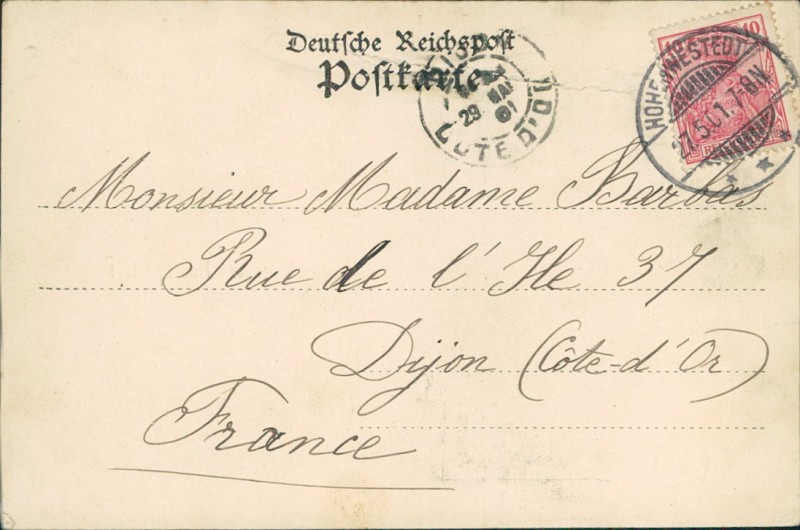 Deutsche Reichspost
Postkarte
DIJON
29 MAI 01
COTE D'OR
10 10
HOHENWESTEDT
27.5.01.7-8N.
Monsieur Madame Barbas
Rue de l'Ile 37
Dijon (Côte-d'Or)
France